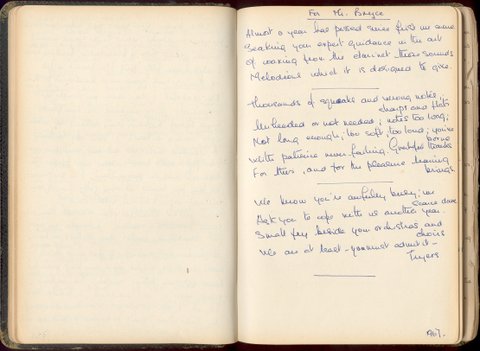 For Mr. Bryce
Almost a year has passed since first we came
Seeking your expert guidance in the art
Of coaxing from the clarinet those sounds
Melodious which it is designed to give.
Thousands of squeaks and wrong notes,
sharps and flats
Unheeded or not needed; notes too long;
Not long enough; too soft; too loud; you've
borne
With patience never-failing. Grateful thanks
For this, and for the pleasure learning
brought.
We know you're awfully busy; we
scarce dare
Ask you to cope with us another year.
Small fry beside your orchestras and
choirs
We are at least - you must admit it -
Tryers
1967.